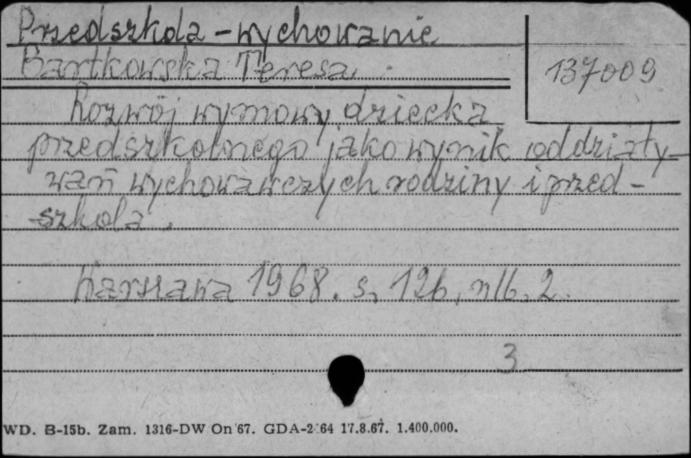 Przedszkola - wychowanie
Bartkowska Teresa.
137009
Rozwój wymowy dziecka
przedszkolnego jako wynik oddziały-
wań wychowawczych rodziny i przed-
szkola.
Warszawa 1968. s. 126, nlb. 2.
3
WD. B-15b. Zam. 1316-DW On 67. GDA-2 64 17.8.67. 1.400.000.